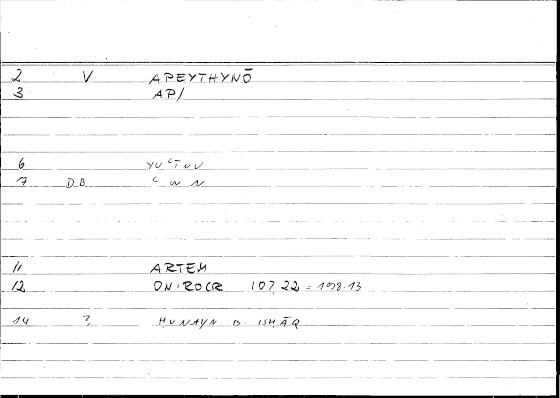 2 V APEYTHYNŌ
3 AP/
6
7 DB
11 ARTEM
12 ONIROCR 107,22 = 198.13
14 ? ḤUNAYN B. ISḤĀQ